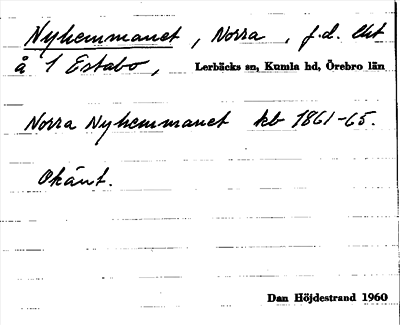 Nyhemmanet, Norra, f.d. lht
å 1 Estabo, Lerbäcks sn, Kumla hd, Örebro län
Norra Nyhemmanet kb 1861-65.
Okänt.
Dan Höjdestrand 1960